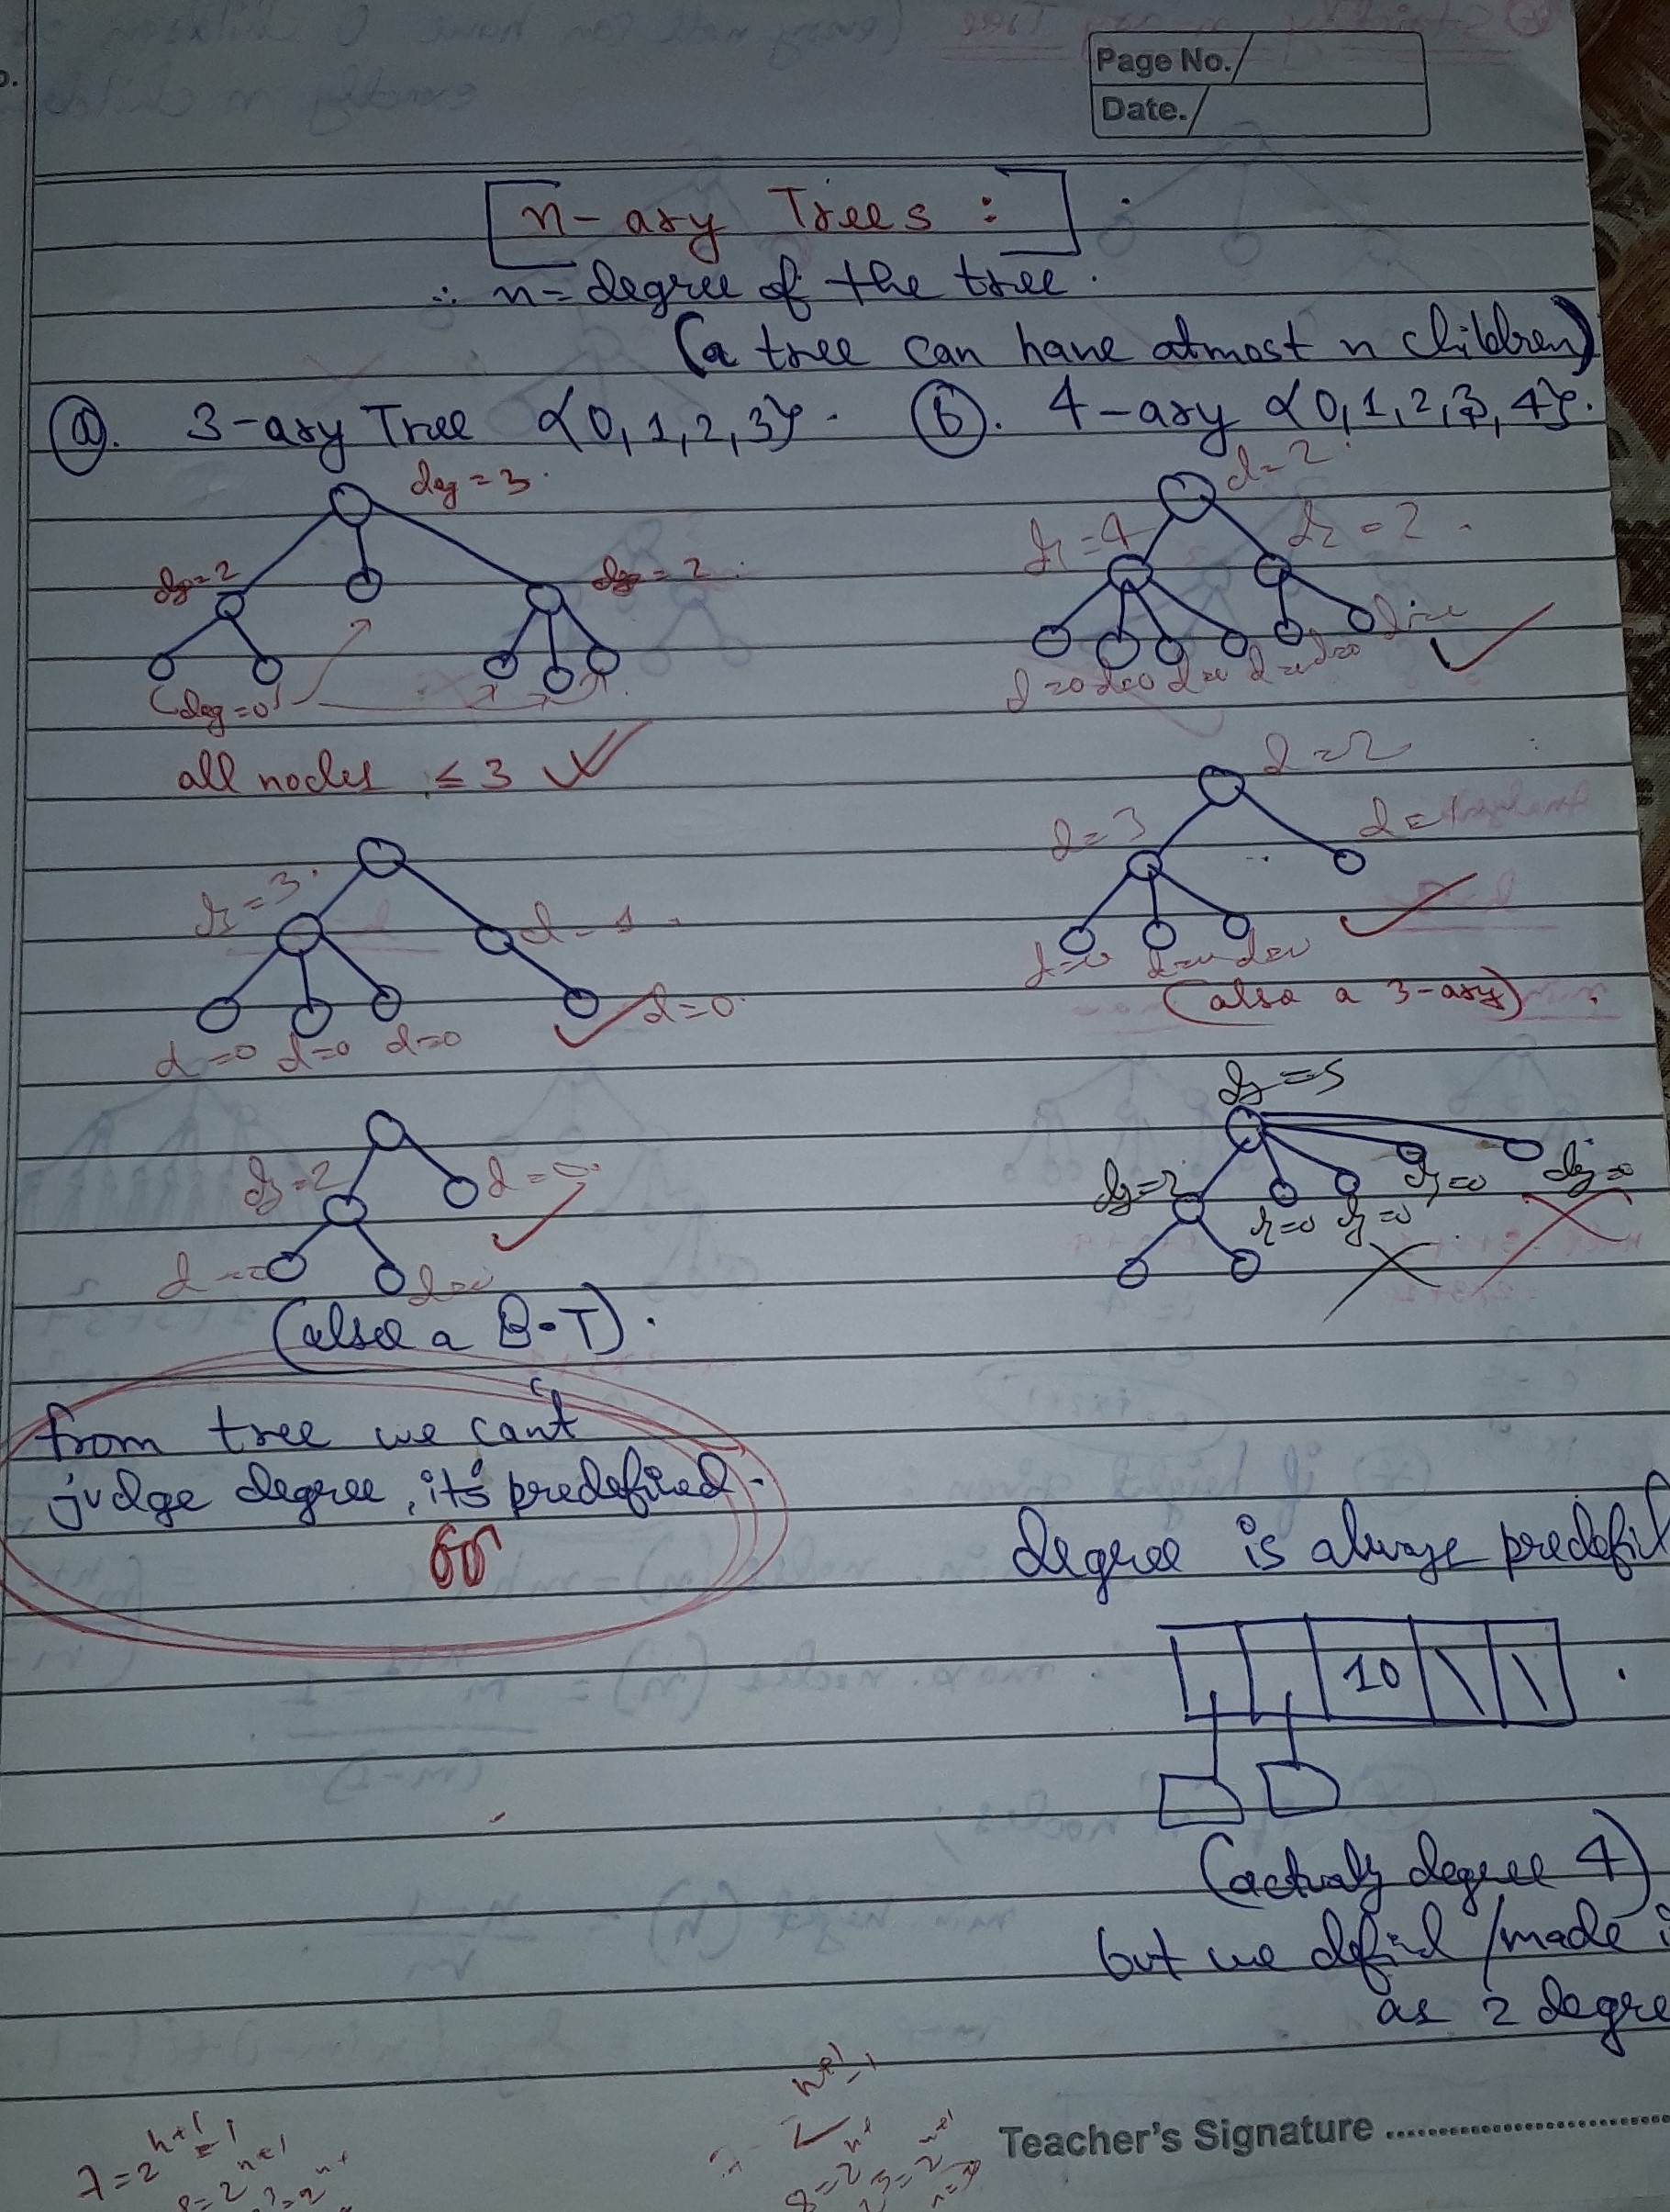 Page No.
Date.
[n-ary Trees :]
∴ n = degree of the tree.
(a tree can have atmost n children)
(a). 3-ary Tree {0, 1, 2, 3}.
(b). 4-ary {0, 1, 2, 3, 4}.
deg = 3
deg = 2
deg = 2
(deg = 0)
all nodes ≤ 3 ✓
d = 3
d = 1
d = 0
d = 0
d = 0
d = 0
deg = 2
d = 0
(also a B.T).
from tree we can't
judge degree, it's predefined.
d = 2
d = 4
d = 2
d = 0
d = 0
d = 0
d = 0
d = 0
d = 2
d = 3
d = 1
d = 0
d = 0
d = 0
(also a 3-ary)
deg = 5
deg = 2
d = 0
deg = 0
deg = 0
deg = 0
degree is always
10
(actualy degree 4)
but we defind / made
as 2
7 = 2^h+1 - 1
8 = 2^h+1
Teacher's Signature